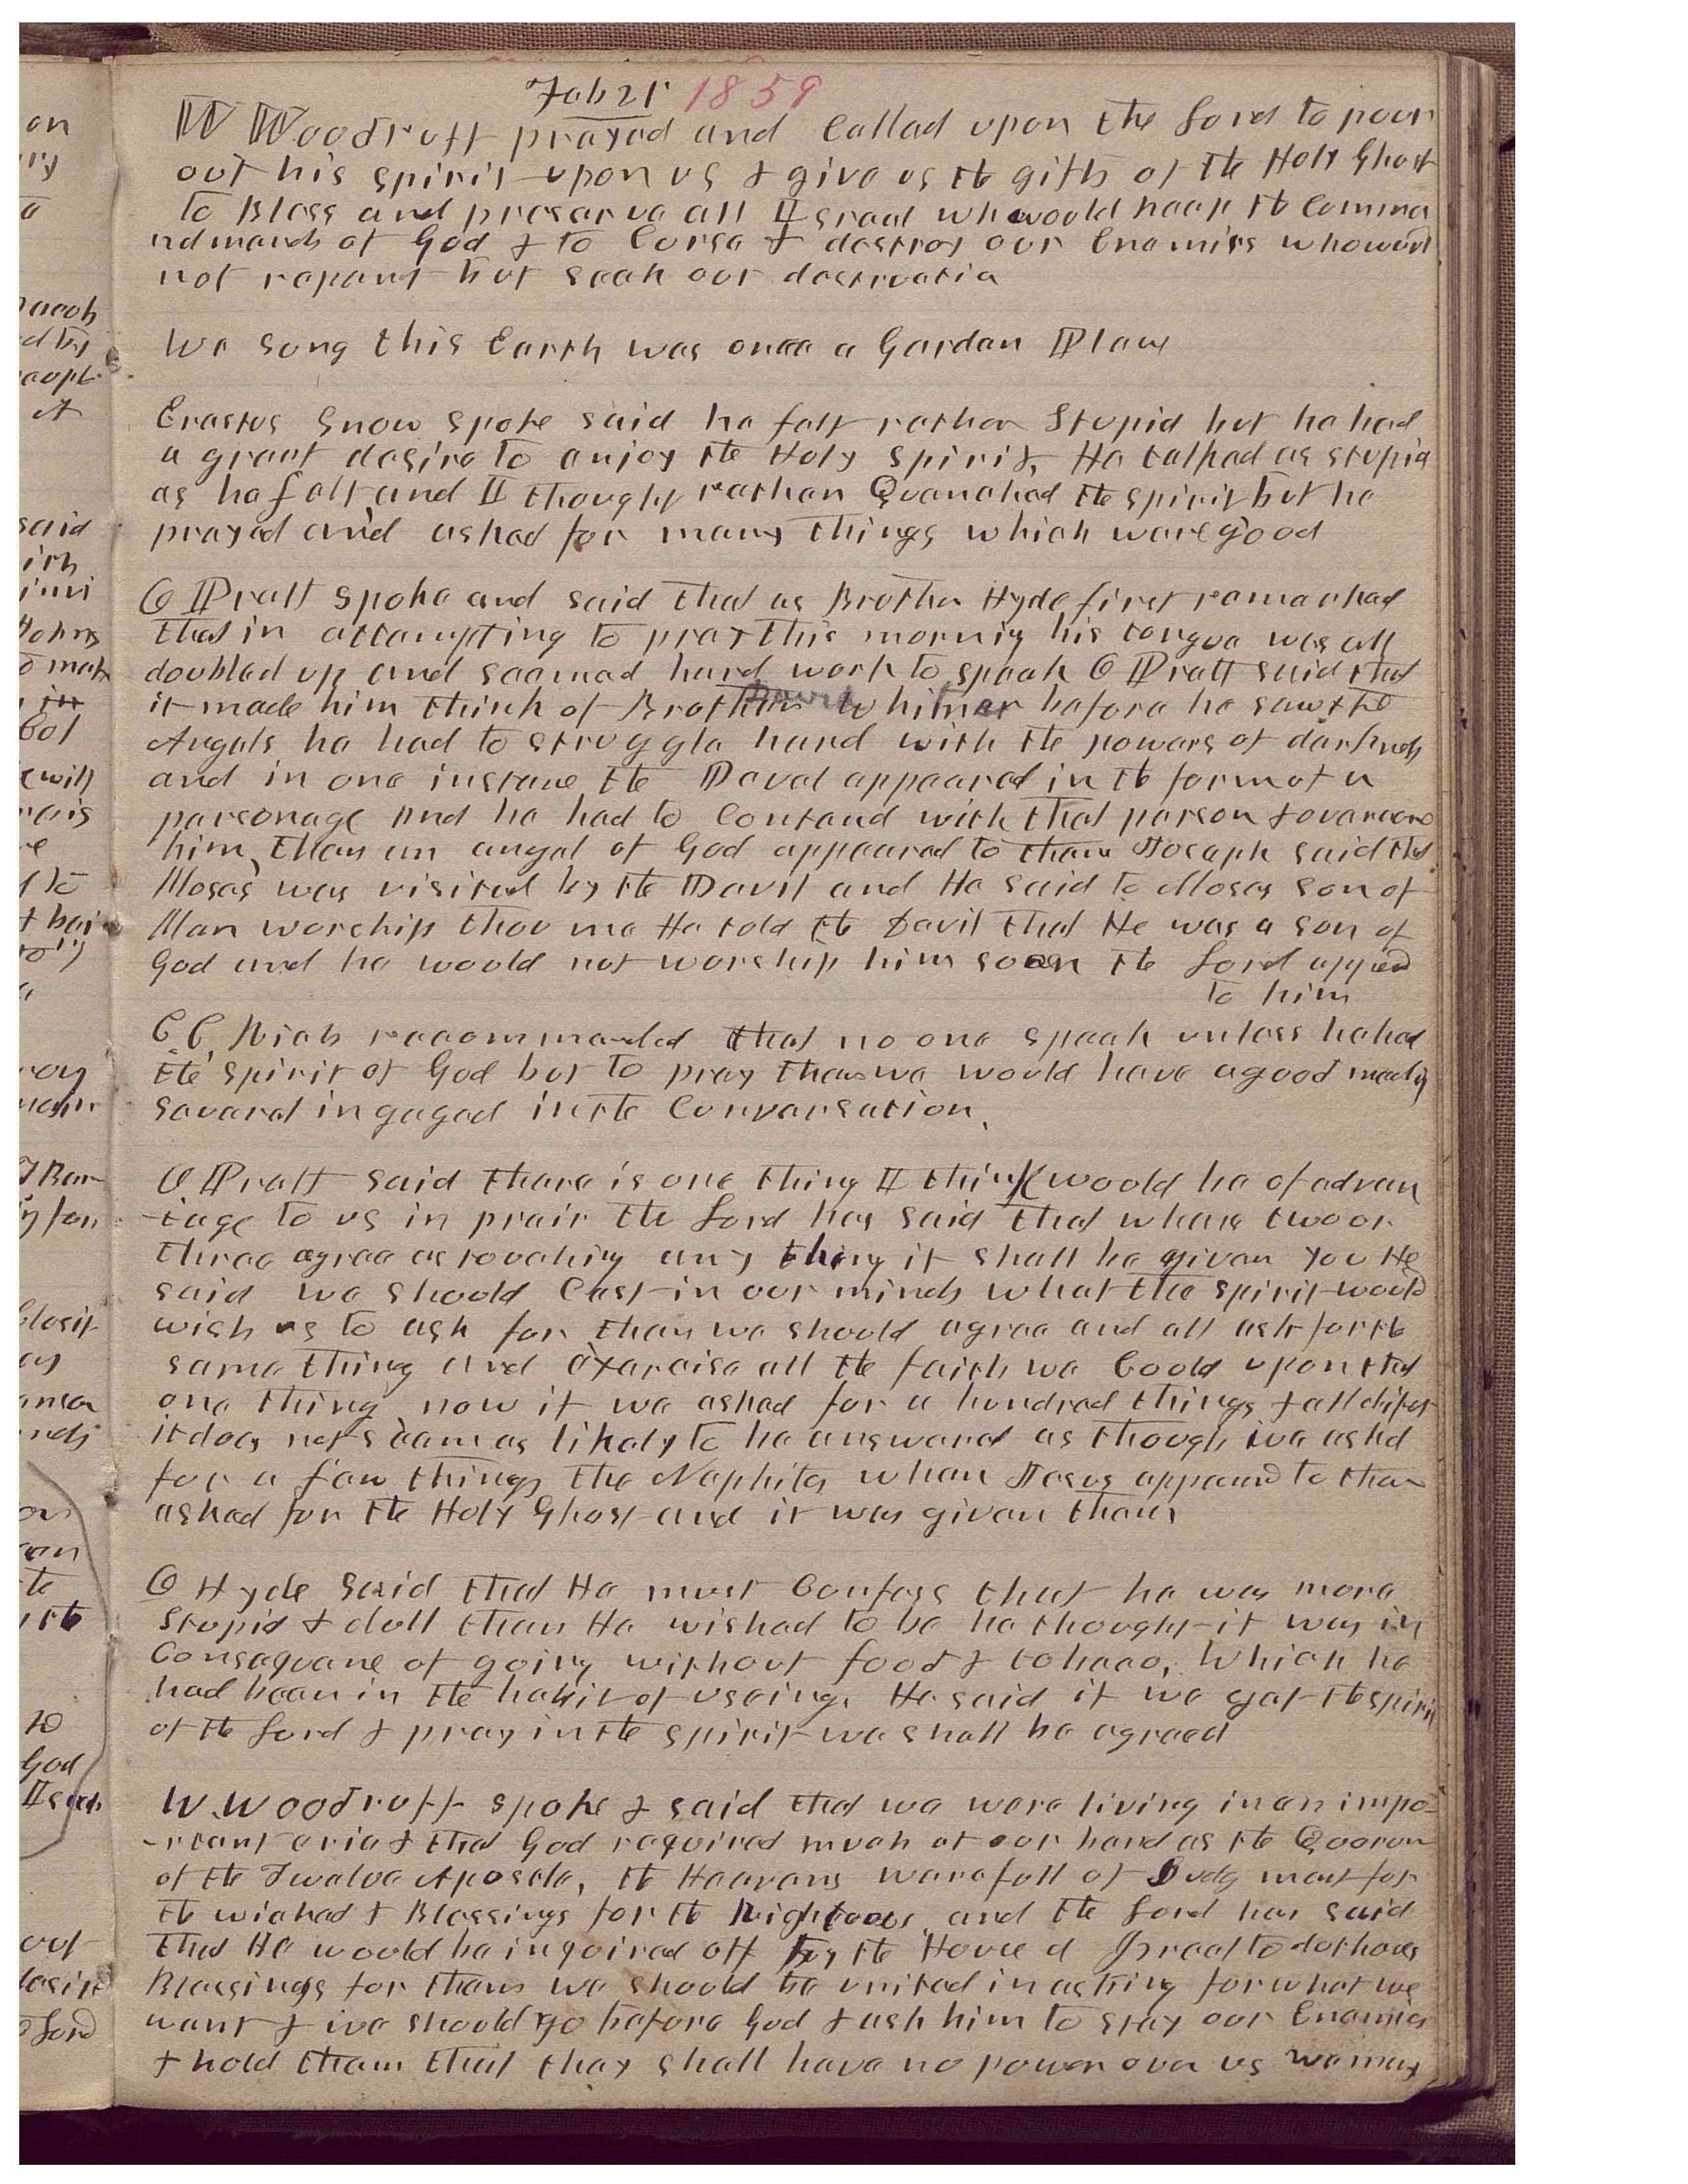 Feb 21st 1859
W Woodruff prayed and Called upon the Lord to pour
out his spirit upon us & give us the gifts of the Holy Ghost
to Bless and preserve all Israel who would keep the Comma
ndments of God & to Curse & destroy our Enemies who would
not repent but seek our destructin
We sung this Earth was once a Garden Place
Erastus Snow spoke said he felt rather Stupid but he had
a great desire to enjoy the Holy Spirit, He talked as stupid
as he felt and I thought rather had the spirit but he
prayed and asked for many things which were good
O Pratt spoke and said that as Brother Hyde first remarked
that in attempting to pray this morning his tongue was all
doubled up and seemed hard work to speak O Pratt said that
it made him think of Brother David Whitmer before he saw the
Angels he had to struggle hard with the powers of darkness
and in one instance the Devel appeared in the form of a
personage and he had to Contend with that person & overcome
him, then an angel of God appeared to them Joseph said that
Moses was visited by the Devil and He said to Moses son of
Man worship thou me He told the Devil that He was a son of
God and he would not worship him soon the Lord appeared
to him
C. C. Rich recommended that no one speak unless he had
the spirit of God but to pray then we would have a good meeting
several ingaged in the Conversation.
O Pratt said there is one thing I think would be of advan
-tage to us in prair the Lord has said that where two or
three agree as touching any thing it shall be given you He
said we should Cast in our minds what the spirit would
wish us to ask for then we should agree and all ask for the
same thing and exercise all the faith we Could upon that
one thing now if we asked for a hundred things & all difert
it does not seem as likely to be answered as though we asked
for a few things the Nephites when Jesus appeared to them
asked for the Holy Ghost and it was given them
O Hyde said that He must Confess that he was more
Stupid & dull than He wished to be he thought it was in
Consequence of going without food & tobacco, Which he
had been in the habit of useing. He said if we get the spirit
of the Lord & pray in the spirit we shall be agreed
W. Woodruff spoke & said that we were living in an impo-
-rtant eria & that God required much at our hand as the Quorum
of the Twelve Apostle, the Heavens were full of Judgment for
the wicked & Blessings for the Righteous and the Lord has said
that He would be inquired off by the House of Israel to do those
Blessings for them we should be united in asking for what we
want & we should go before God & ask him to stay our Enemies
& hold them that they shall have no power over us we may